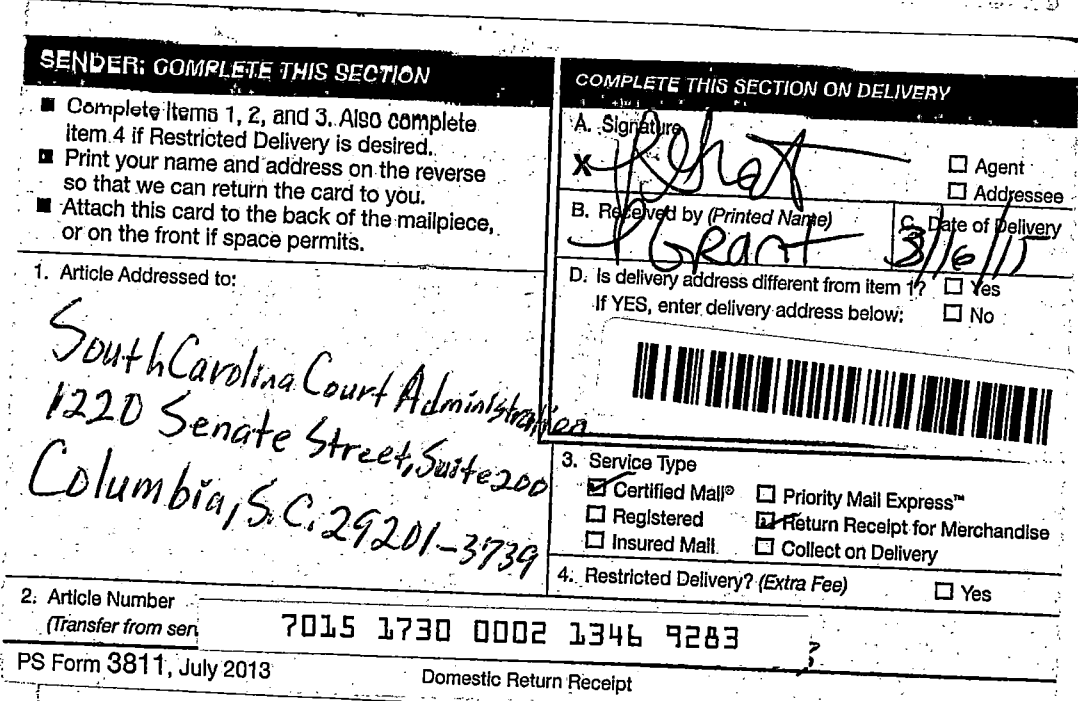 SENDER: COMPLETE THIS SECTION
■ Complete items 1, 2, and 3. Also complete
item 4 if Restricted Delivery is desired.
■ Print your name and address on the reverse
so that we can return the card to you.
■ Attach this card to the back of the mailpiece,
or on the front if space permits.
1. Article Addressed to:
South Carolina Court Administration
1220 Senate Street, Suite 200
Columbia, S.C. 29201-3739
2. Article Number
(Transfer from ser
7015 1730 0002 1346 9283
PS Form 3811, July 2013
Domestic Return Receipt
COMPLETE THIS SECTION ON DELIVERY
A. Signature
X
☐ Agent
☐ Addressee
B. Received by (Printed Name)
Grant
C. Date of Delivery
D. Is delivery address different from item 1? ☐ Yes
If YES, enter delivery address below: ☐ No
3. Service Type
☑ Certified Mail® ☐ Priority Mail Express™
☐ Registered ☑ Return Receipt for Merchandise
☐ Insured Mail ☐ Collect on Delivery
4. Restricted Delivery? (Extra Fee) ☐ Yes